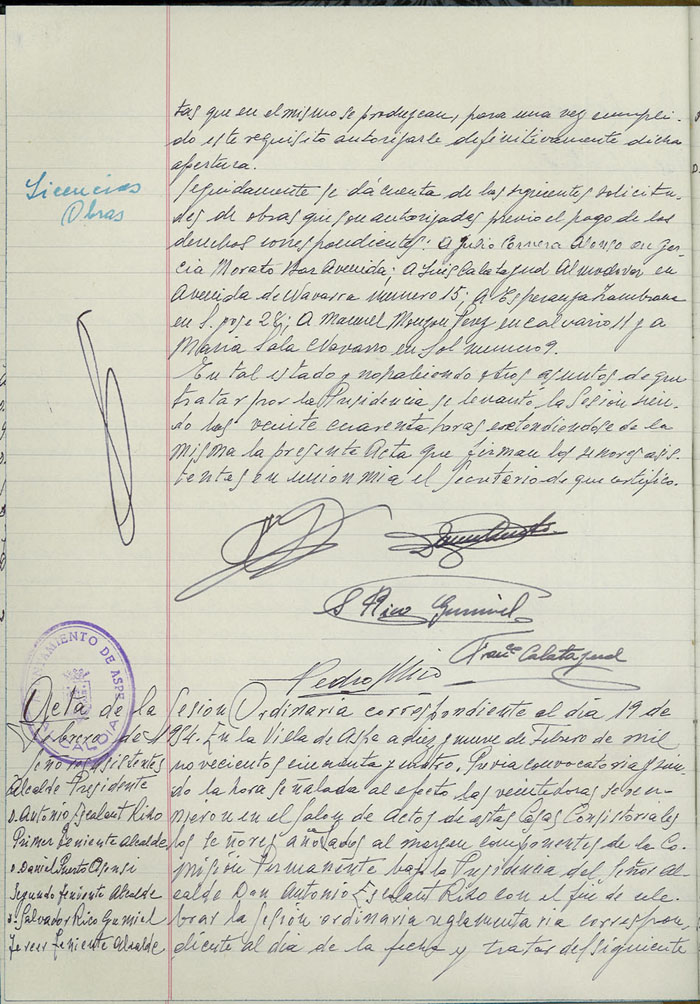 tas que en el mismo se produzcan, para una vez cumpli-
do este requisito autorizarle definitivamente dicha
apertura.
Licencias
Obras
Seguidamente se dá cuenta de las siguientes solicitu-
des de obras que son autorizadas previo el pago de los
derechos correspondientes: A Julio Cerrera Alonso en Gar-
cia Morato Avenida; A Luis Calatayud Almodovar en
Avenida de Navarra número 15; A Esperanza Zambrana
en S. José 28; A Manuel Monzon Perez en Calvario 11 y a
Maria Sala Navarro en Sol numero 9.
En tal estado y no habiendo otros asuntos de que
tratar por la Presidencia se levanto la Sesión sien-
do las veinte cuarenta horas extendiendose de la
misma la presente Acta que firman los señores asis-
tentes en union mia el Secretario de que certifico.
S Rico Gumiel
Franco Calatayud
Pedro Mico
AYUNTAMIENTO DE ASPE
ALCALDIA
Acta de la Sesion Ordinaria correspondiente al dia 19 de
Febrero de 1954. En la Villa de Aspe a diez y nueve de Febrero de mil
novecientos cincuenta y cuatro. Previa convocatoria y sien-
do la hora señalada al efecto las veintedoras se reu-
nieron en el Salon de Actos de estas Casas Consistoriales
los señores anotados al margen componentes de la Co-
misión Permanente bajo la Presidencia del Señor Al-
calde Don Antonio Escalant Riko con el fin de cele-
brar la sesión ordinaria reglamentaria correspon-
diente al dia de la fecha y tratar del siguiente
Señores asistentes
Alcalde Presidente
D. Antonio Escalant Riko
Primer Teniente Alcalde
D. Daniel Puerto Asensi
Segundo Teniente Alcalde
D. Salvador Rico Gumiel
Tercer Teniente Alcalde